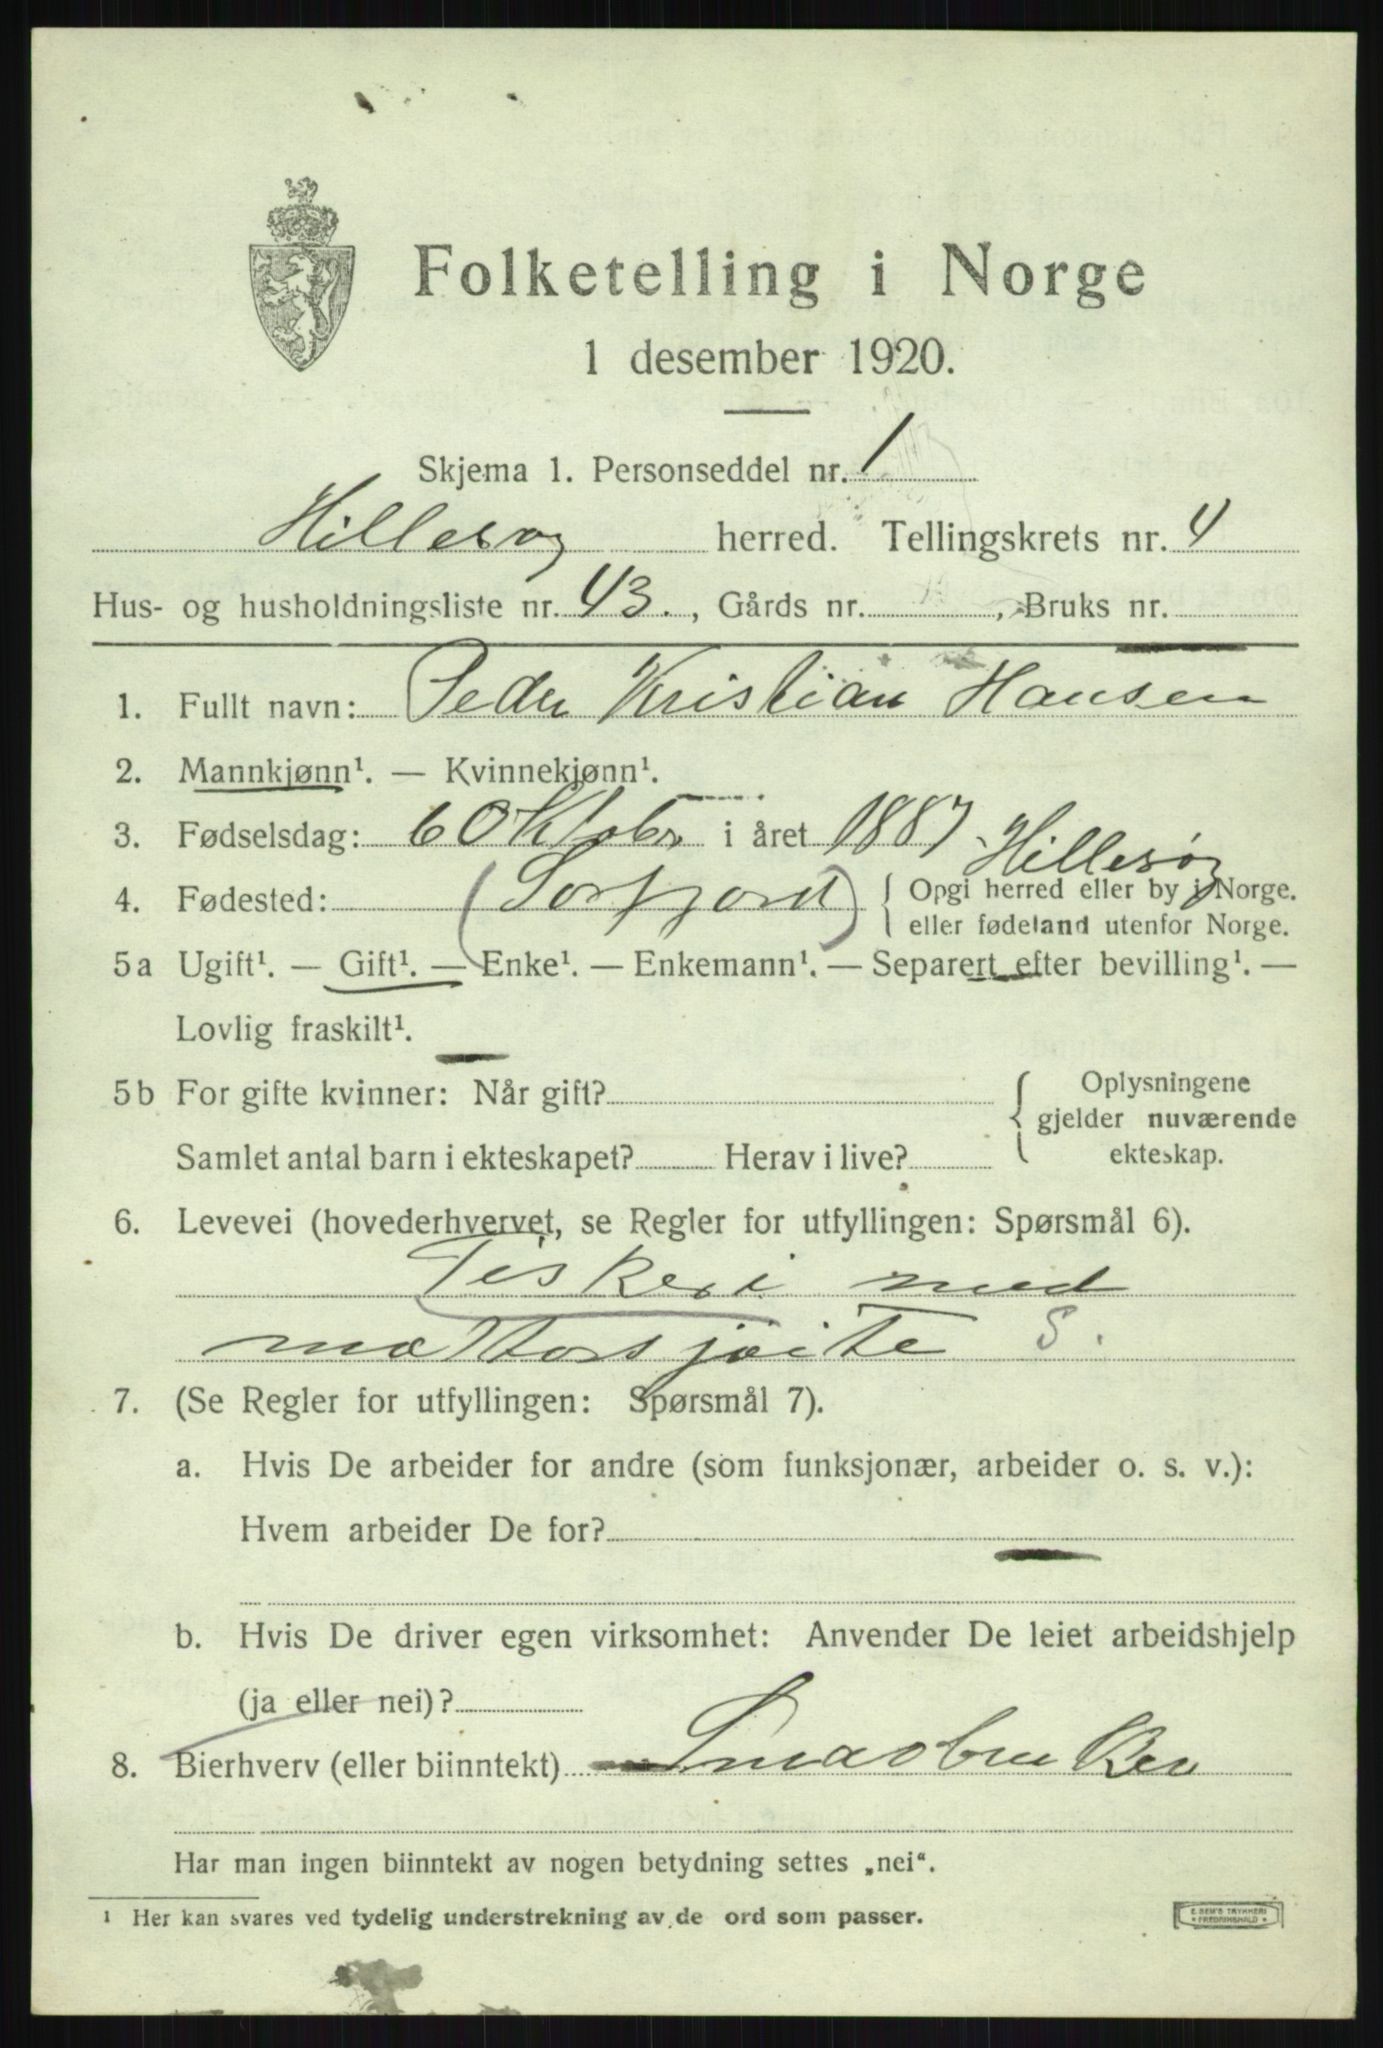 Folketelling i Norge
1 desember 1920.
Skjema 1. Personseddel nr. 1
Hillesøy herred. Tellingskrets nr. 4
Hus- og husholdningsliste nr. 43., Gårds nr. , Bruks nr.
1. Fullt navn: Peder Kristian Hansen
2. Mannkjønn¹. — Kvinnekjønn¹.
3. Fødselsdag: 6 Oktobr i året 1887
Hillesøy
4. Fødested: (Sorfjord) { Opgi herred eller by i Norge.
eller fødeland utenfor Norge.
5a Ugift¹. — Gift¹. — Enke¹. — Enkemann¹. — Separert efter bevilling¹. —
Lovlig fraskilt¹.
5b For gifte kvinner: Når gift? { Oplysningene
gjelder nuværende
Samlet antal barn i ekteskapet? Herav i live? ekteskap.
6. Levevei (hovederhvervet, se Regler for utfyllingen: Spørsmål 6).
Fiskeri med
mottorsjøite S.
7. (Se Regler for utfyllingen: Spørsmål 7).
a. Hvis De arbeider for andre (som funksjonær, arbeider o. s. v.):
Hvem arbeider De for?
b. Hvis De driver egen virksomhet: Anvender De leiet arbeidshjelp
(ja eller nei)?
8. Bierhverv (eller biinntekt) Smaabruker
Har man ingen biinntekt av nogen betydning settes „nei“.
¹ Her kan svares ved tydelig understrekning av de ord som passer.
E. SEM'S TRYKKERI
* FREDRIKSHALD *